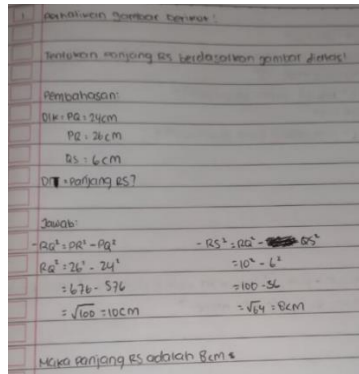 1 Perhatikan gambar berikut!
Tentukan panjang RS berdasarkan gambar diatas!
Pembahasan:
Dik = PQ = 24cm
PR = 26cm
QS = 6cm
DIT = Panjang RS?
Jawab:
- RQ² = PR² - PQ²
RQ² = 26² - 24²
= 676 - 576
= √100 = 10cm
- RS² = RQ² - QS²
= 10² - 6²
= 100 - 36
= √64 = 8cm
Maka panjang RS adalah 8cm.